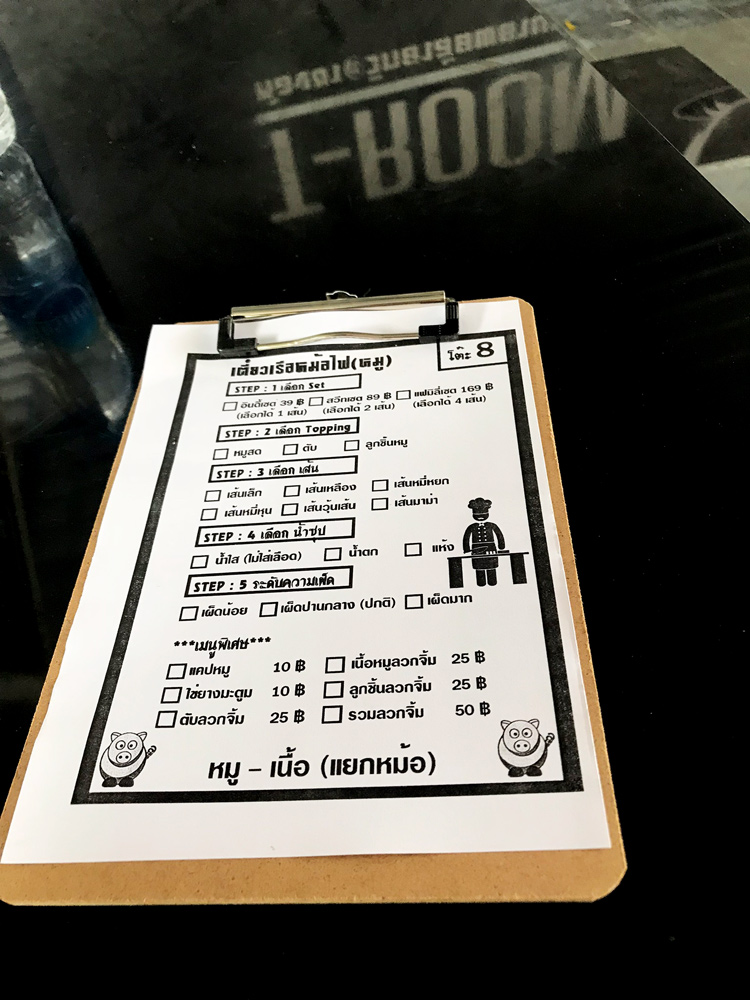 T-ROOM
เตี๋ยวเรือหม้อไฟ(หมู)
โต๊ะ 8
STEP : 1 เลือก Set
อินดี้เซต 39 ฿ สวีทเซต 89 ฿ แฟมิลี่เซต 169 ฿
(เลือกได้ 1 เส้น) (เลือกได้ 2 เส้น) (เลือกได้ 4 เส้น)
STEP : 2 เลือก Topping
หมูสด ตับ ลูกชิ้นหมู
STEP : 3 เลือก เส้น
เส้นเล็ก เส้นเหลือง เส้นหมี่หยก
เส้นหมี่หุ่น เส้นวุ้นเส้น เส้นมาม่า
STEP : 4 เลือก น้ำซุป
น้ำใส (ไม่ใส่เลือด) น้ำตก แห้ง
STEP : 5 ระดับความเผ็ด
เผ็ดน้อย เผ็ดปานกลาง (ปกติ) เผ็ดมาก
***เมนูพิเศษ***
แคปหมู 10 ฿ เนื้อหมูลวกจิ้ม 25 ฿
ไข่ยางมะตูม 10 ฿ ลูกชิ้นลวกจิ้ม 25 ฿
ตับลวกจิ้ม 25 ฿ รวมลวกจิ้ม 50 ฿
หมู - เนื้อ (แยกหม้อ)